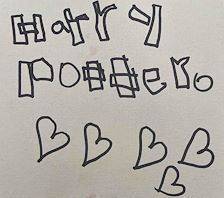 Harry
Potter.